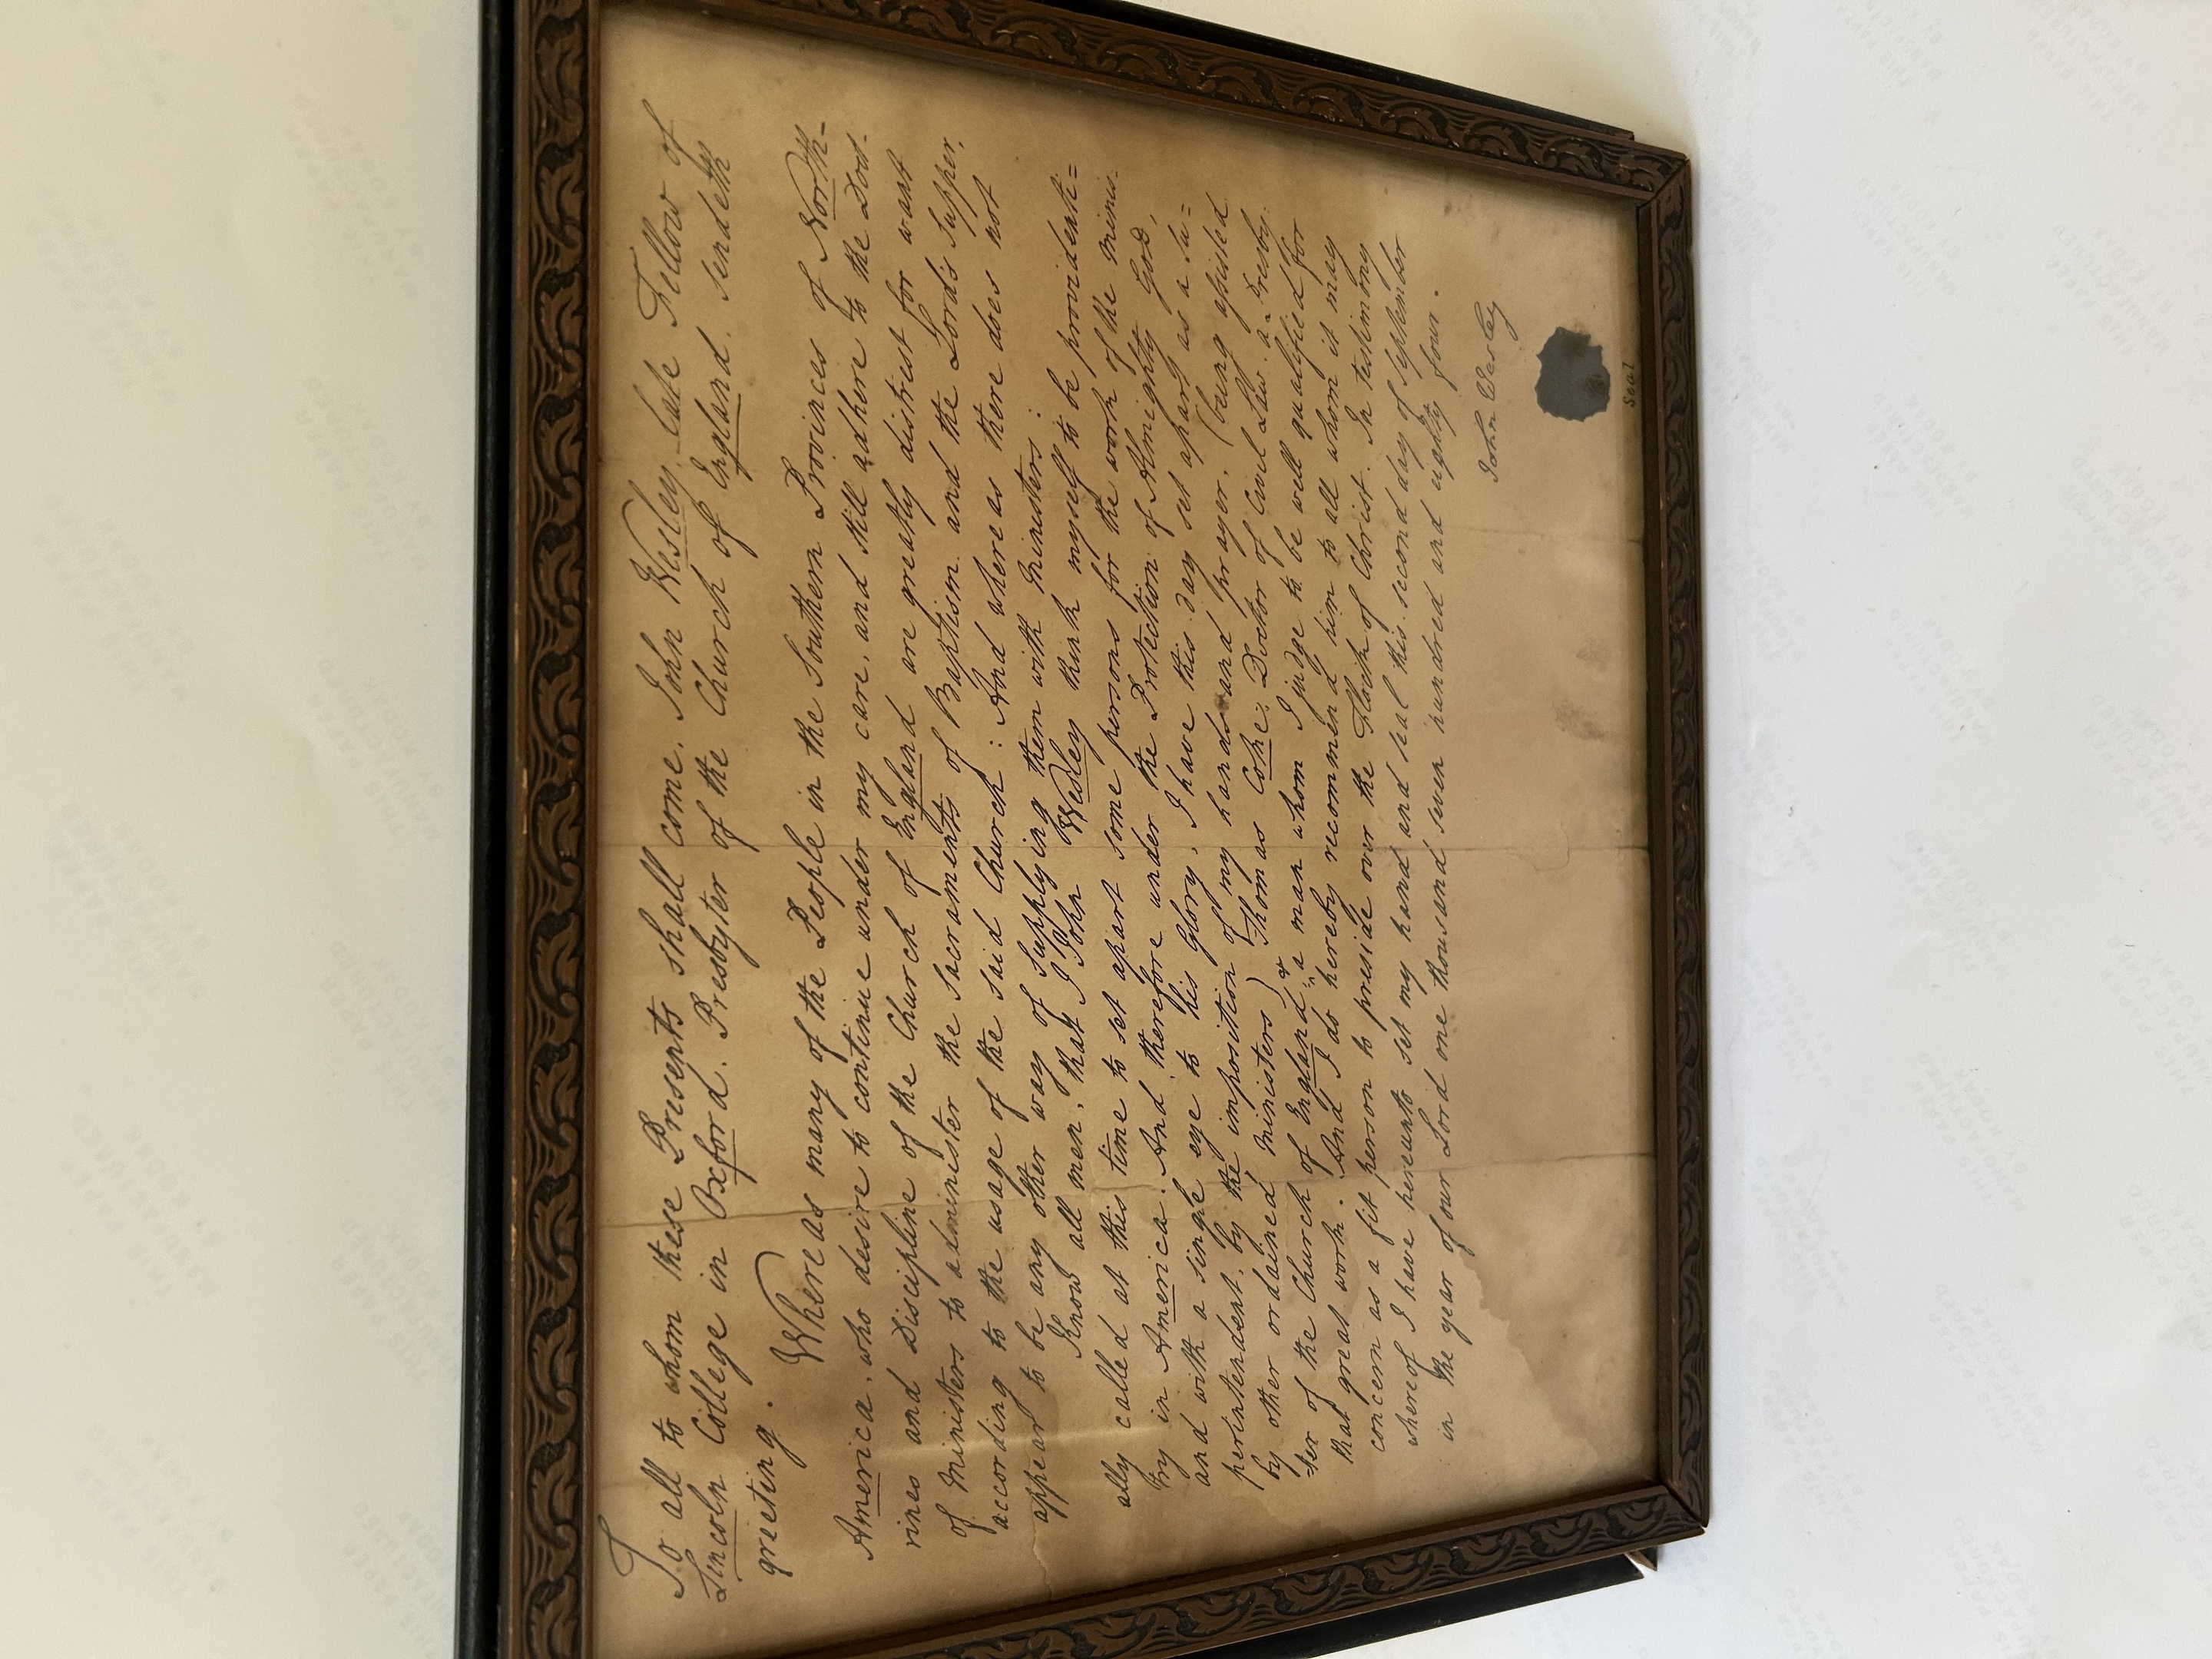 To all to whom these Presents shall come, John Wesley, Late Fellow of
Lincoln College in Oxford, Presbyter of the Church of England, sendeth
greeting.
Whereas many of the People in the Southern Provinces of North=
America, who desire to continue under my care, and still adhere to the Doct-
rines and Discipline of the Church of England are greatly distrest for want
of Ministers to administer the sacraments of Baptism and the Lord's Supper,
according to the usage of the said Church: And whereas there does not
appear to be any other way of supplying them with Ministers:
Know all men, that I John Wesley think myself to be providenti=
ally called at this time to set apart some persons for the work of the Minis-
try in America. And therefore under the Protection of Almighty God,
and with a single eye to his Glory, I have this day set apart as a Su=
perintendent, by the imposition of my hands and prayer, (being assisted
by other ordained Ministers) Thomas Coke, Doctor of Civil Law, a Presby-
=ter of the Church of England, & a man whom I judge to be well qualified for
that great work. And I do hereby recommend him to all whom it may
concern as a fit person to preside over the Flock of Christ. In testimony
whereof I have hereunto set my hand and seal this second day of September
in the year of our Lord one thousand seven hundred and eighty four.
John Wesley
Seal
THIS PAPER
MANUFACTURED
BY KODAK